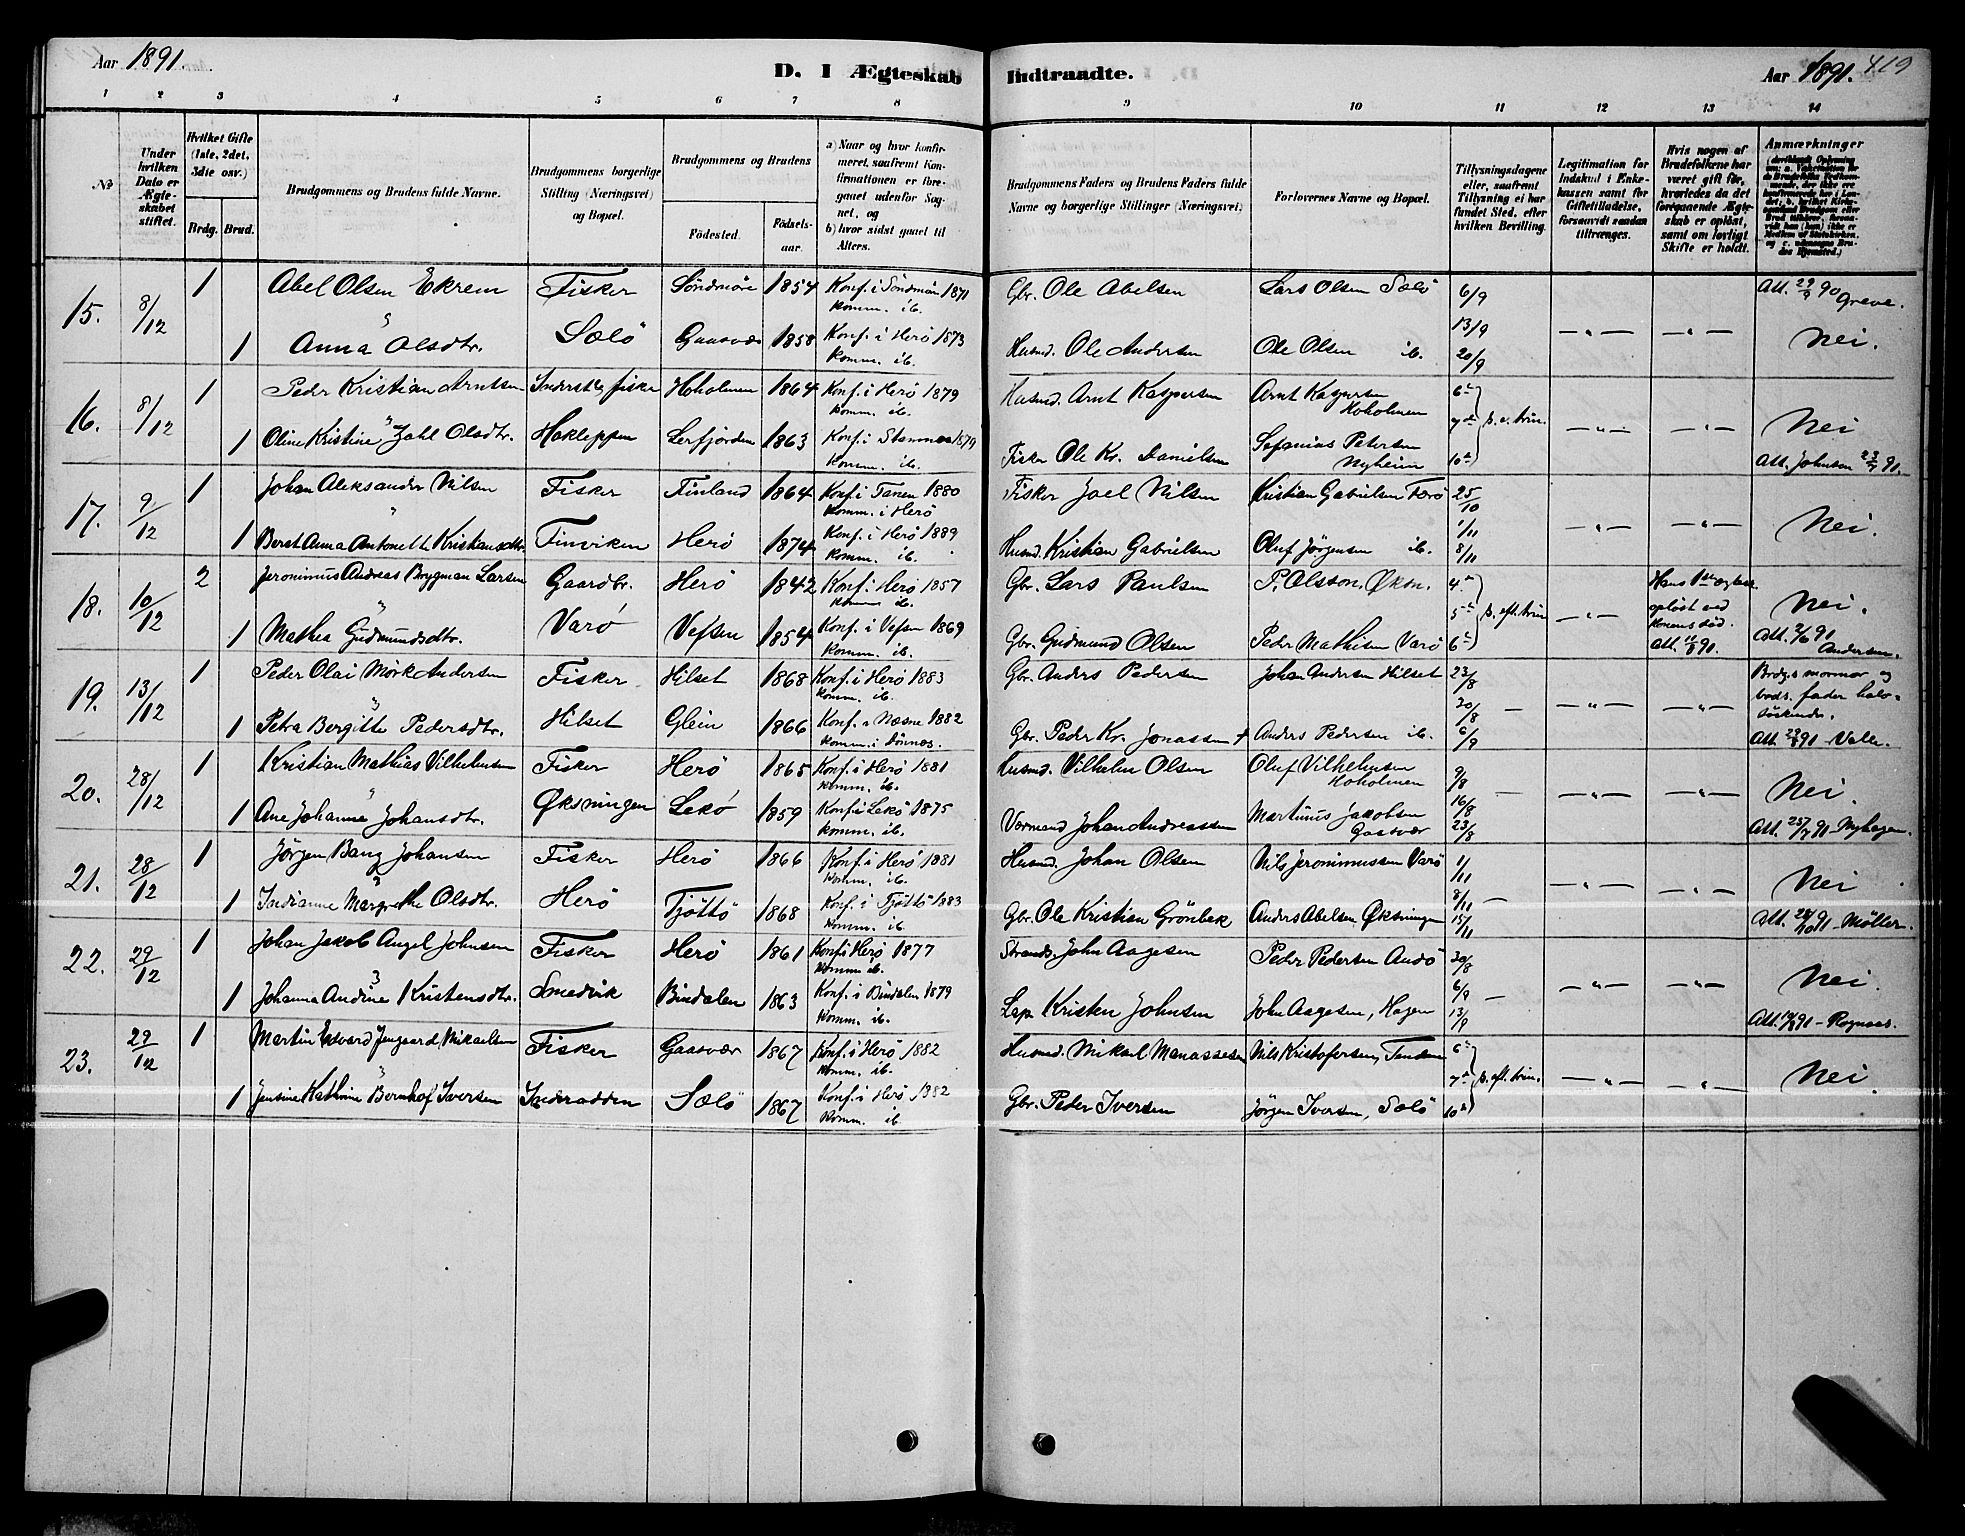 Aar 1891.
D. I Ægteskab Indtraadte.
Aar 1891. 419
1 2 3 4 5 6 7 8 9 10 11 12 13 14
No
Under hvilken Dato er Ægteskabet stiftet.
Hvilket Gifte (1ste, 2det, 3die osv.)
Brdg. Brud.
Brudgommens og Brudens fulde Navne.
Brudgommens borgerlige Stilling (Næringsvei) og Bopæl.
Brudgommens og Brudens
Fødested. Fødselsaar.
a) Naar og hvor konfirmeret, saafremt Konfirmationen er foregaaet udenfor Sognet, og
b) hvor sidst gaaet til Alters.
Brudgommens Faders og Brudens Faders fulde Navne og borgerlige Stillinger (Næringsvei)
Forlovernes Navne og Bopæl.
Tillysningsdagene eller, saafremt Tillysning ei har fundet Sted, efter hvilken Bevilling.
Legitimation for Indskud i Enkekassen samt for Giftetilladelse, forsaavidt saadan tiltrænges.
Hvis nogen af Brudefolkene har været gift før, hvorledes da det foregaaende Ægteskab er opløst, samt om lovligt Skifte er holdt.
Anmærkninger
15. 8/12 1 Abel Olsen Ekrem Fisker Söndmöre 1854 Konf. i Söndmör 1871 Komm. ib. Gbr. Ole Abelsen Lars Olsen Sælö 6/9 Att. 29/9 90 Greve.
1 Anna Olsdtr. Sælö Gaasvær 1858 Konf. i Herö 1873 Komm. ib. Husmd. Ole Andersen Ole Olsen ib. 13/9 20/9 — " — — " — Nei.
16. 8/12 1 Peder Kristian Arntsen Inderst & fisker Hoholmen 1864 Konf. i Herö 1879 Komm. ib. Husmd. Arnt Kaspersen Arnt Kaspersen Hoholmen 6te
1 Oline Kristine Zahl Olsdtr. Hakleppen Lerfjorden 1863 Konf. i Stamnes 1879 Komm. ib. Fisker Ole Kr. Danielsen Sefanias Petersen Nyheim 7de 10de p. e. trin. — " — — " — Nei Att. Johnson 23/7 91.
17. 9/12 1 Johan Aleksander Nilsen Fisker Finland 1864 Konf. i Tanen 1880 Komm. i Herö Fisker Joel Nilsen Kristian Gabrielsen Færö 25/10
1 Beret Anna Antonette Kristiansdtr. Finviken Herö 1874 Konf. i Herö 1889 Komm. ib. Husmd. Kristian Gabrielsen Oluf Jørgensen ib. 1/11 8/11 — " — — " — Nei.
18. 10/12 2 Jeronimus Andreas Brygman Larsen Gaardbr. Herö 1842 Konf. i Herö 1857 Komm. ib. Gbr. Lars Paulsen P. Olsson, Øksn. 4de Hans 1ste ægtesk. opløst ved konens död. Att. 11/8 91.
1 Mathea Gudmundsdtr. Varö Vefsen 1854 Konf. i Vefsen 1869 Komm. ib. Gbr. Gudmund Olsen Peder Mathisen Varö 5te 6te s. eft. trin. — " — Nei. Att. 2/6 91 Andersen.
19. 13/12 1 Peder Olai Mörk Andersen Fisker Hilset 1868 Konf. i Herö 1883 Komm. ib. Gbr. Anders Pedersen Johan Andersen Hilset 23/8 Brdg.s mormor og bruds. fader halvsöskende.
1 Petra Bergitte Pedersdtr. Hilset Glein 1866 Konf. i Næsne 1882 Komm. i Dönnes. Gbr. Peder Kr. Jonassen + Anders Pedersen ib. 30/8 6/9 — — " — — " — Att. 23/8 91 – Valle.
20. 28/12 1 Kristian Mathias Vilhelmsen Fisker Herö 1865 Konf. i Herö 1881 Komm. ib. Husmd. Vilhelm Olsen Oluf Vilhelmsen Hoholmen 9/8
1 Ane Johanna Johansdtr. Øksningen Lekö 1859 Konf. i Lekö 1875 Komm. ib. Værmand Johan Andreassen Martinus Jakobsen Gaasvær 16/8 23/8 — — " — — " — Nei. Att. 25/7 91 – Nyhagen.
21. 28/12 1 Jörgen Bang Johansen Fisker Herö 1866 Konf. i Herö 1881 Komm. ib. Husmd. Johan Olsen Nils Jeronimussen Varö 1/11
1 Indianne Margrethe Olsdtr. Herö Tjöttö 1868 Konf. i Tjöttö 1883 Komm. ib. Gbr. Ole Kristian Grönbek Anders Abelsen Øksningen 8/11 15/11 — — " — — " — Nei Att. 24/10 91 – Møller.
22. 29/12 1 Johan Jakob Angel Johnsen Fisker Herö 1861 Konf. i Herö 1877 Komm. ib. Strands. John Aagesen Peder Pedersen Andö 30/8
1 Johanna Andrine Kristensdtr. Smedvik Bindalen 1863 Konf. i Bindalen 1879 Komm. ib. Lap Kristen Johnsen John Aagesen, Hagen 6/9 13/9 — — " — — " — Nei. Att. 14/8 91 – Rognaas.
23. 29/12 1 Martin Edvard Jengaard Mikaelsen Fisker Gaasvær 1867 Konf. i Herö 1882 Komm. ib. Husmd. Mikael Manassesen Nils Kristofersen, Tenden 6te
1 Jensine Kathrine Bernhof Iversen Inderodden Sælö 1867 Konf. i Herö 1882 Komm. ib. Gbr. Peder Iversen Jörgen Iversen, Sælö 7de 10de s. eft. trin. — " — — " — Nei.